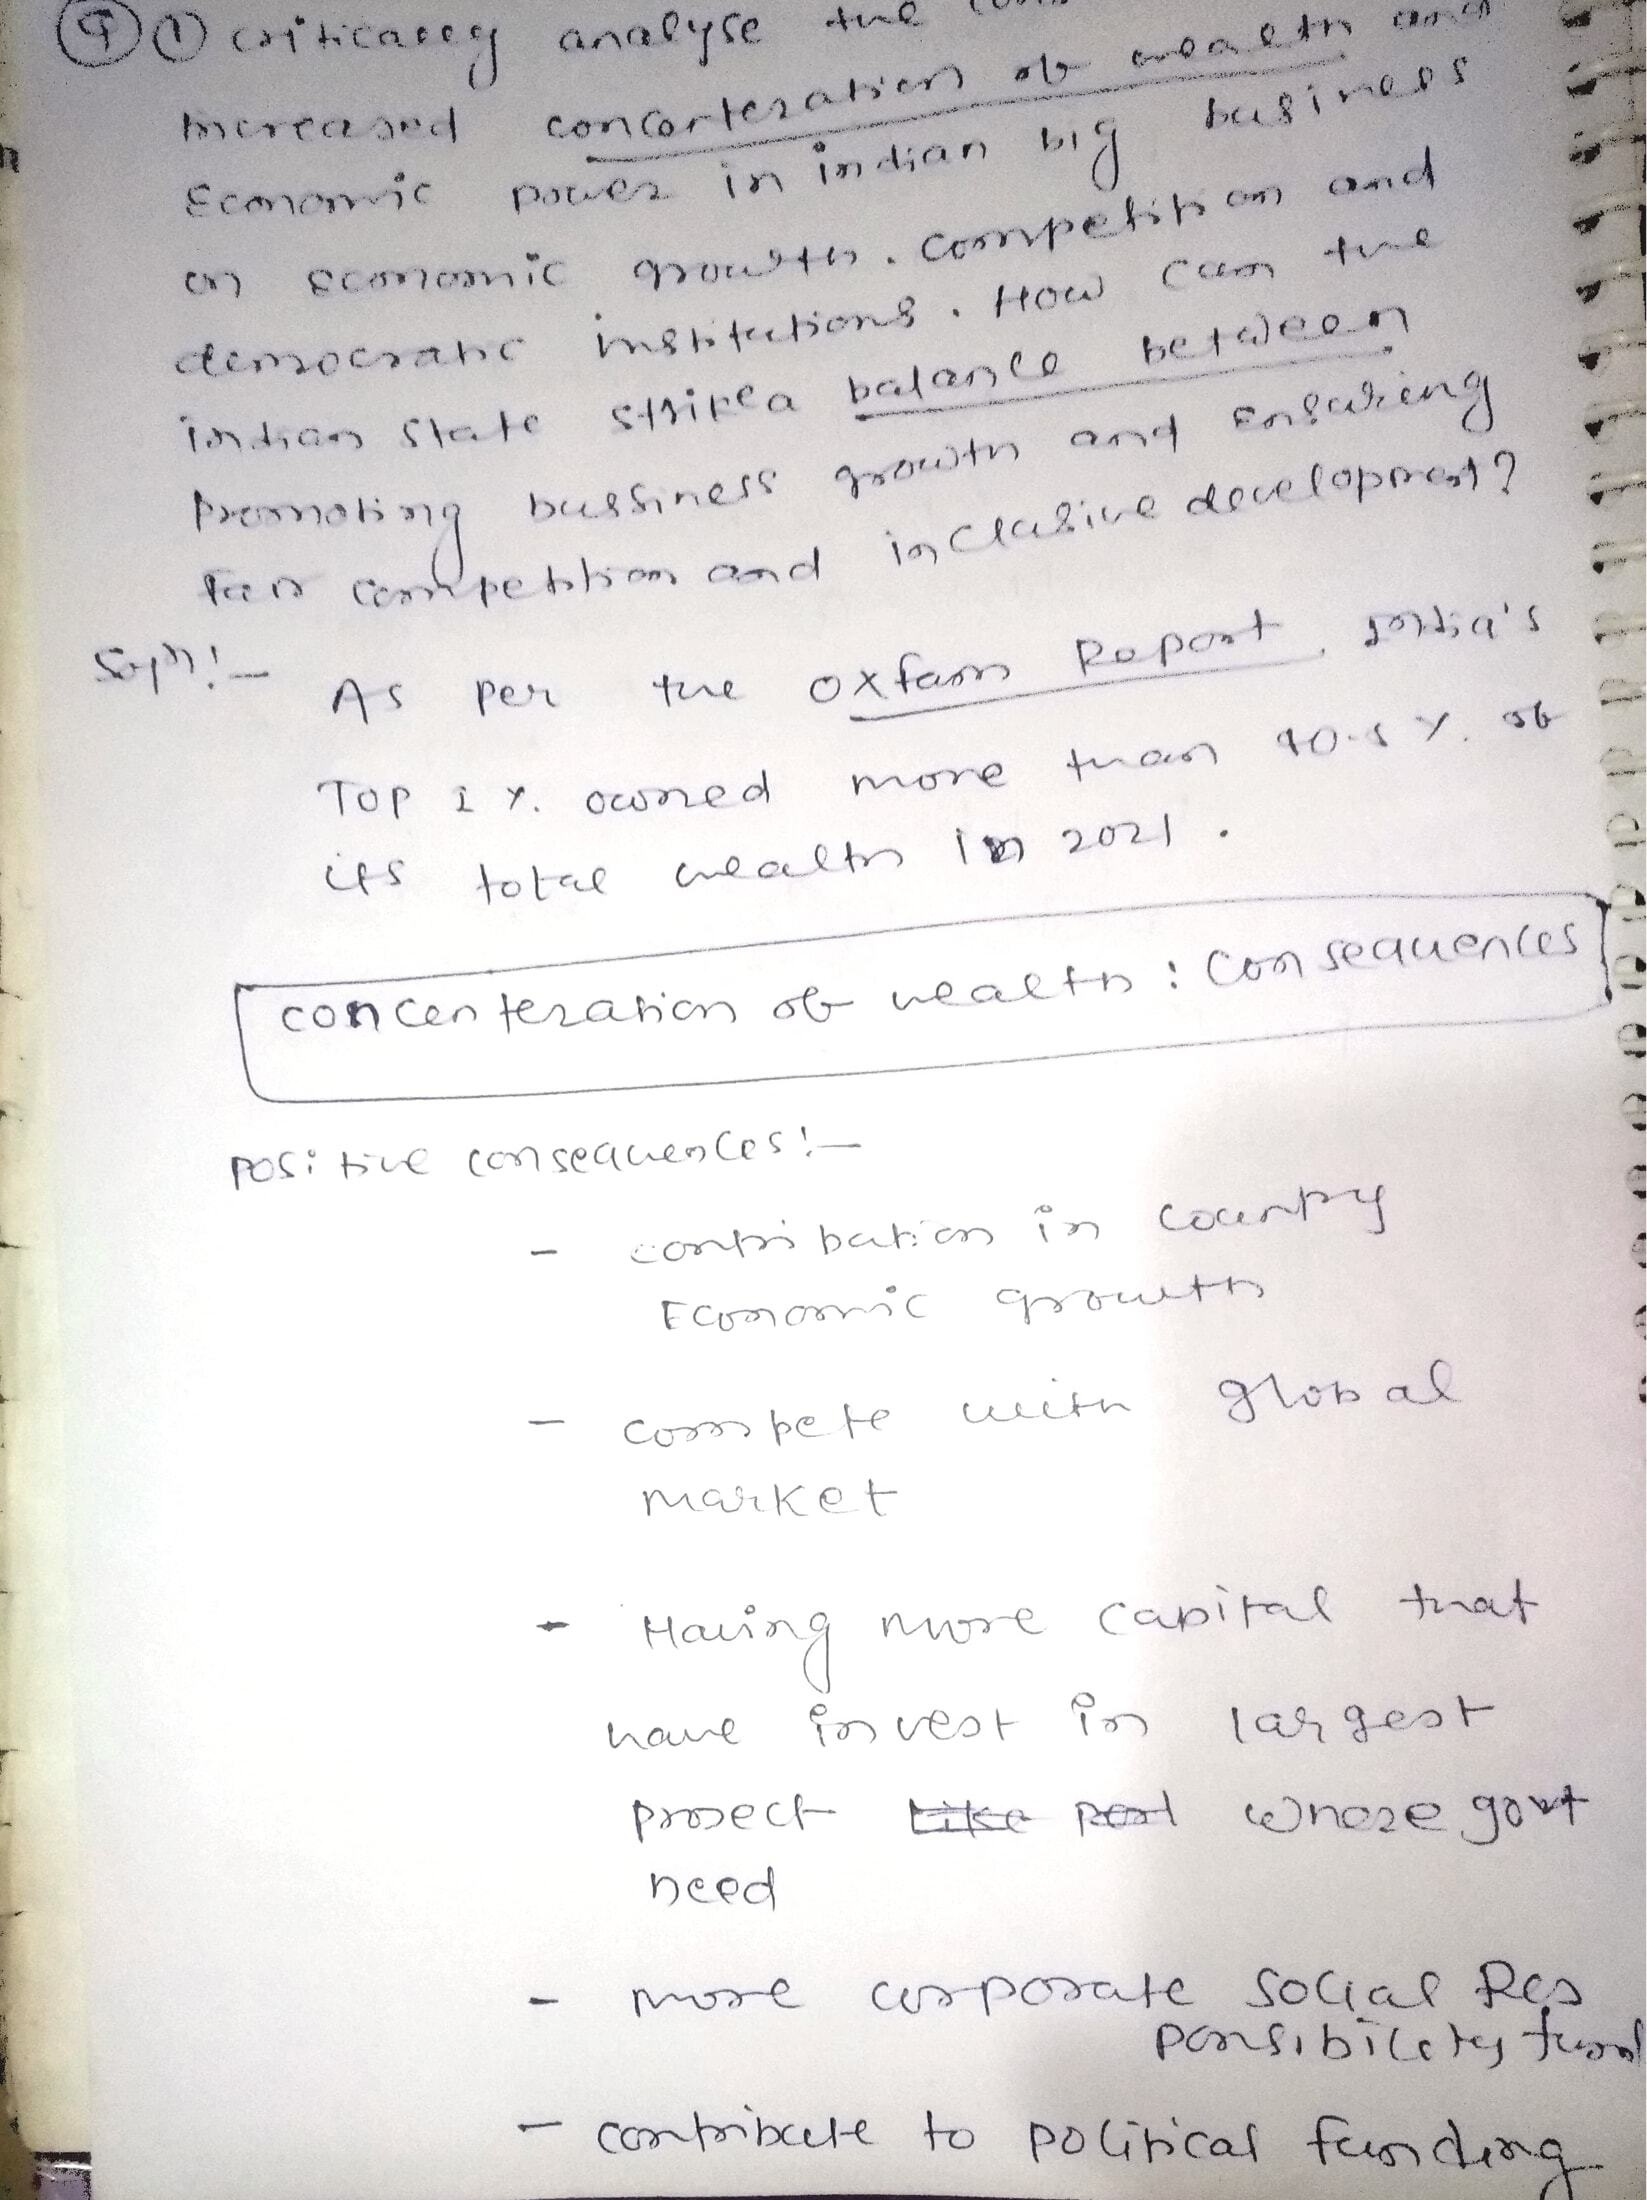 Q 1 critically analyse the
increased concenteration of wealth and
Economic power in indian big business
on economic growth. competition and
democratic institutions. How can the
indian state strike a balance between
promoting bussiness growth and ensuring
fair competition and inclusive development?
Sol^n:- As per the oxfam Report, India's
Top 1 %. owned more than 40.5 %. of
its total wealth in 2021.
concenteration of wealth : Consequences
positive consequences:-
- contribution in country
Economic growth
- compete with global
market
- Having more capital that
have invest in largest
project whose govt
need
- more corporate social Res
ponsibility fund
- contribute to political funding